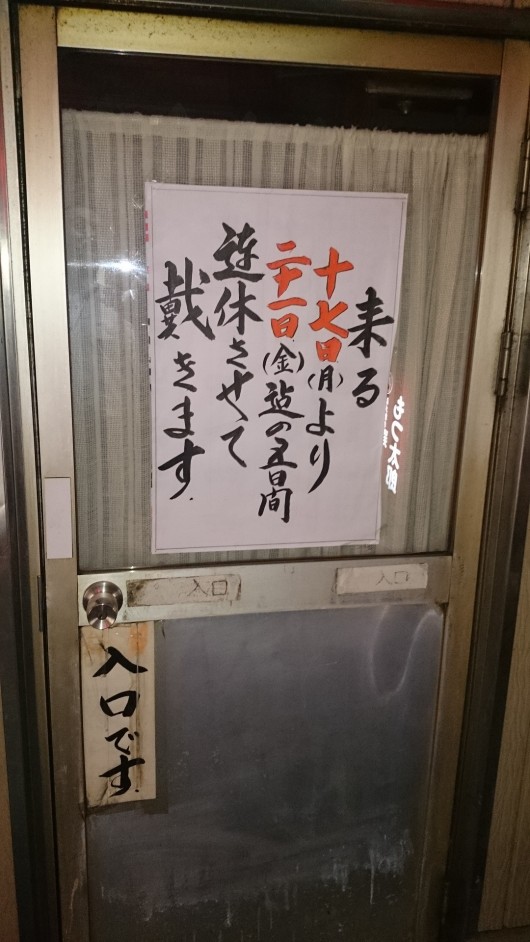 来る
十七日(月)より
二十一日(金)迠の五日間
連休させて
戴きます.
入口
入口
入口です